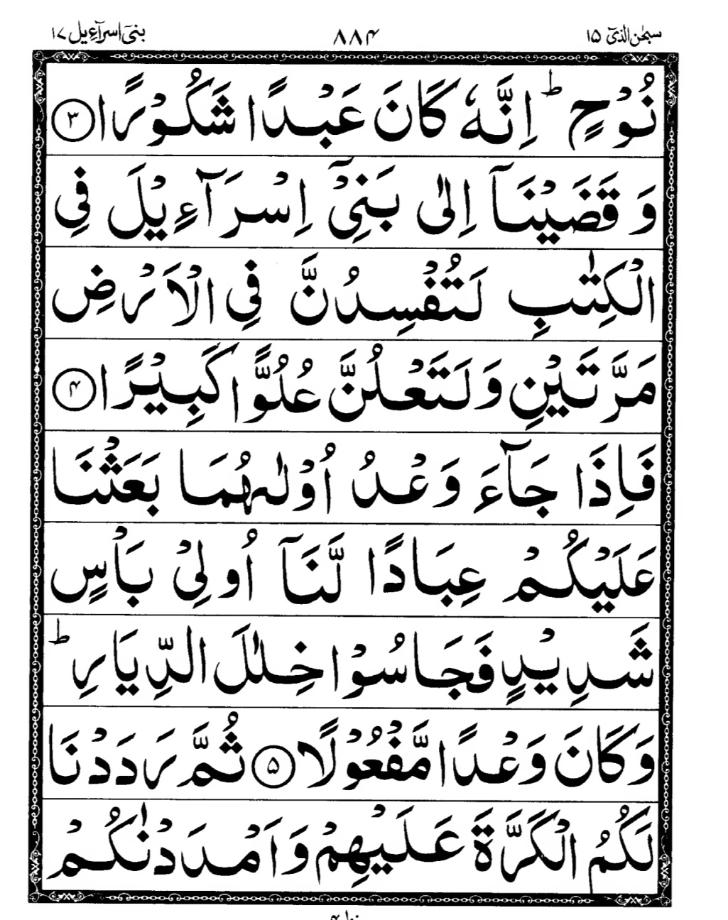 سبحٰن الذیٓ ۱۵ ۸۸۴ بنیٓ اسرآءیل ۱۷
نُوْحٍ ؕ اِنَّهٗ كَانَ عَبْدًا شَكُوْرًا ۳
وَ قَضَيْنَاۤ اِلٰى بَنِيْۤ اِسْرَآءِيْلَ فِي
الْكِتٰبِ لَتُفْسِدُنَّ فِي الْاَرْضِ
مَرَّتَيْنِ وَلَتَعْلُنَّ عُلُوًّا كَبِيْرًا ۴
فَاِذَا جَآءَ وَعْدُ اُوْلٰىهُمَا بَعَثْنَا
عَلَيْكُمْ عِبَادًا لَّنَاۤ اُولِيْ بَاْسٍ
شَدِيْدٍ فَجَاسُوْا خِلٰلَ الدِّيَارِ ؕ
وَكَانَ وَعْدًا مَّفْعُوْلًا ۵ ثُمَّ رَدَدْنَا
لَكُمُ الْكَرَّةَ عَلَيْهِمْ وَاَمْدَدْنٰكُمْ